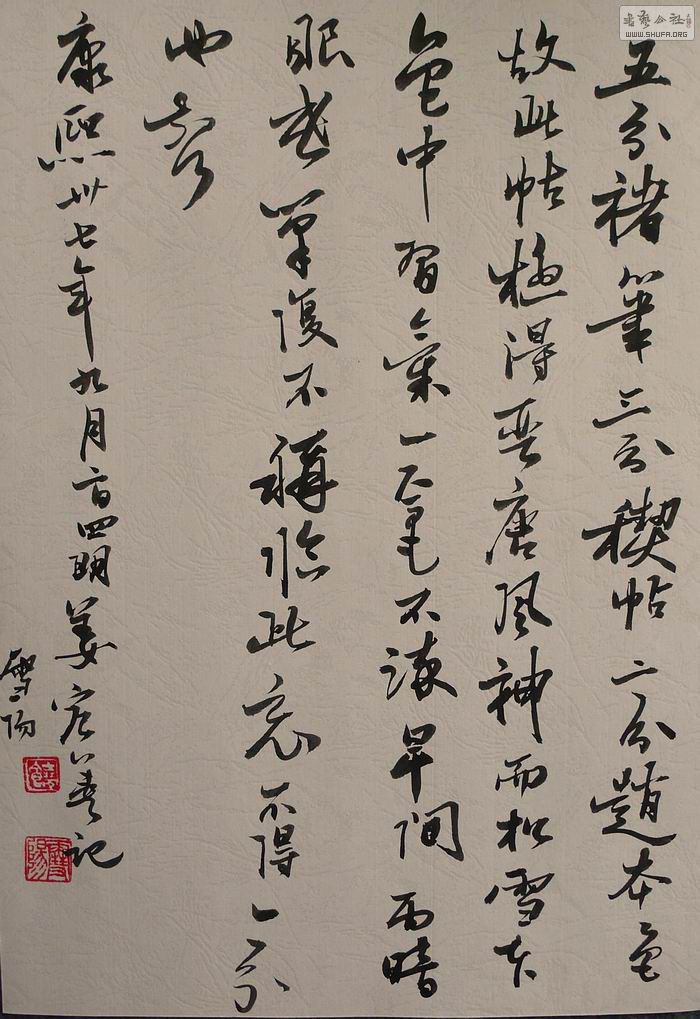 書藝公社
WWW.SHUFA.ORG
五分褚筆三分稧帖二分趙本色
故此帖極得晋唐風神而松雪本
色中習氣一毫不染早間雨暗
眼昏筆復不稱臨此竟不得一分
也
康熙卅七年九月四明姜宸英記
雪陽
饒
雪陽